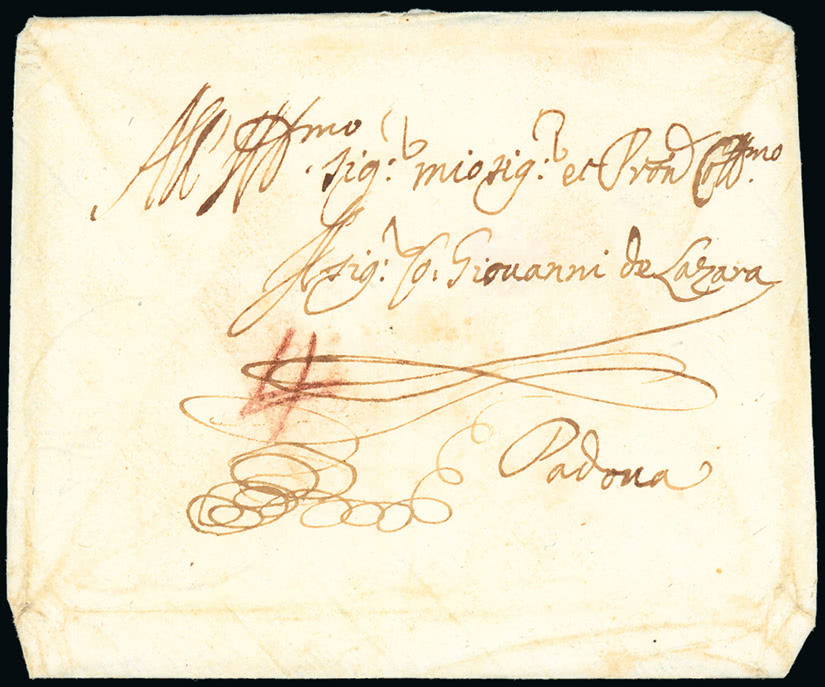 All' Ill.mo Sig.r mio Sig.r et Pron Coll.mo
Il Sig.r Co. Giovanni de Lazara
4
Padova